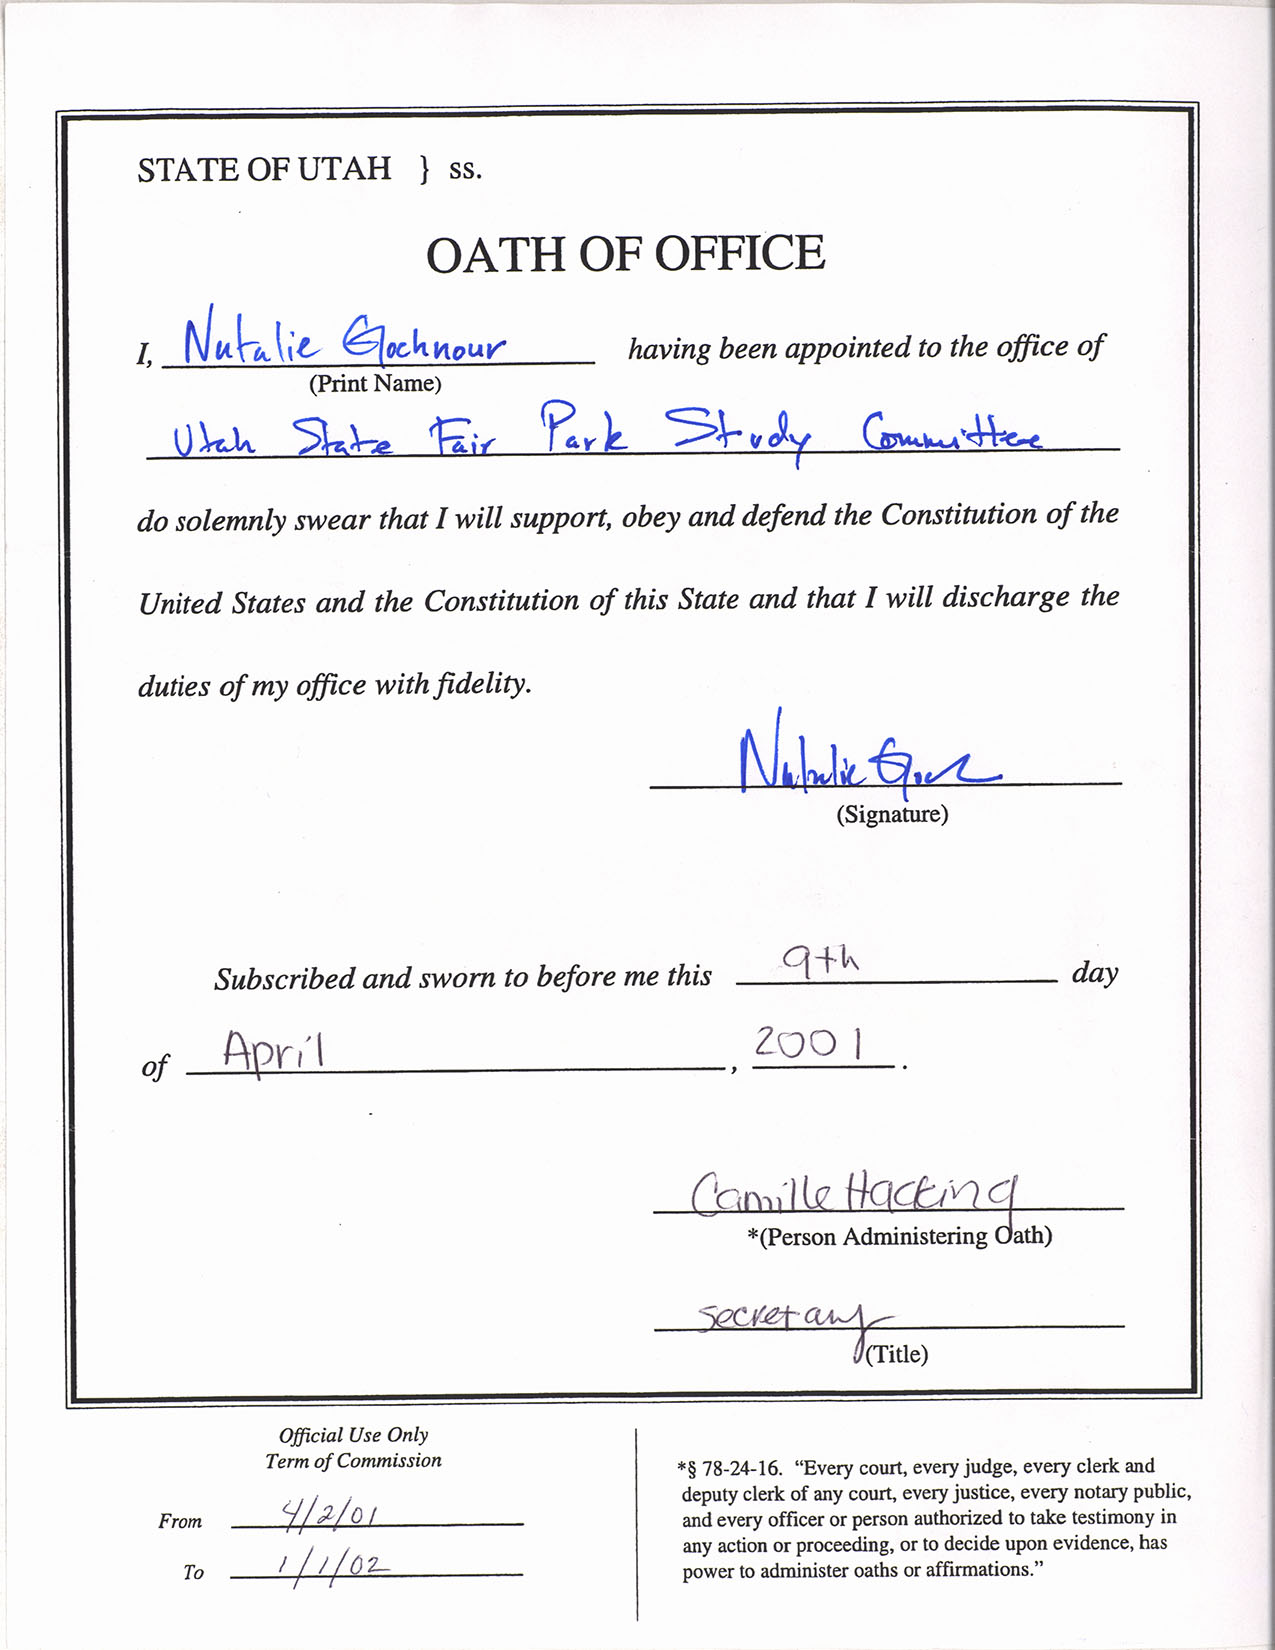 STATE OF UTAH } ss.
OATH OF OFFICE
I, Natalie Gochnour having been appointed to the office of
(Print Name)
Utah State Fair Park Study Committee
do solemnly swear that I will support, obey and defend the Constitution of the
United States and the Constitution of this State and that I will discharge the
duties of my office with fidelity.
Natalie Goch
(Signature)
Subscribed and sworn to before me this 9th day
of April, 2001.
Camille Hacking
*(Person Administering Oath)
secretary
(Title)
Official Use Only
Term of Commission
From 4/2/01
To 1/1/02
*§ 78-24-16. “Every court, every judge, every clerk and
deputy clerk of any court, every justice, every notary public,
and every officer or person authorized to take testimony in
any action or proceeding, or to decide upon evidence, has
power to administer oaths or affirmations.”